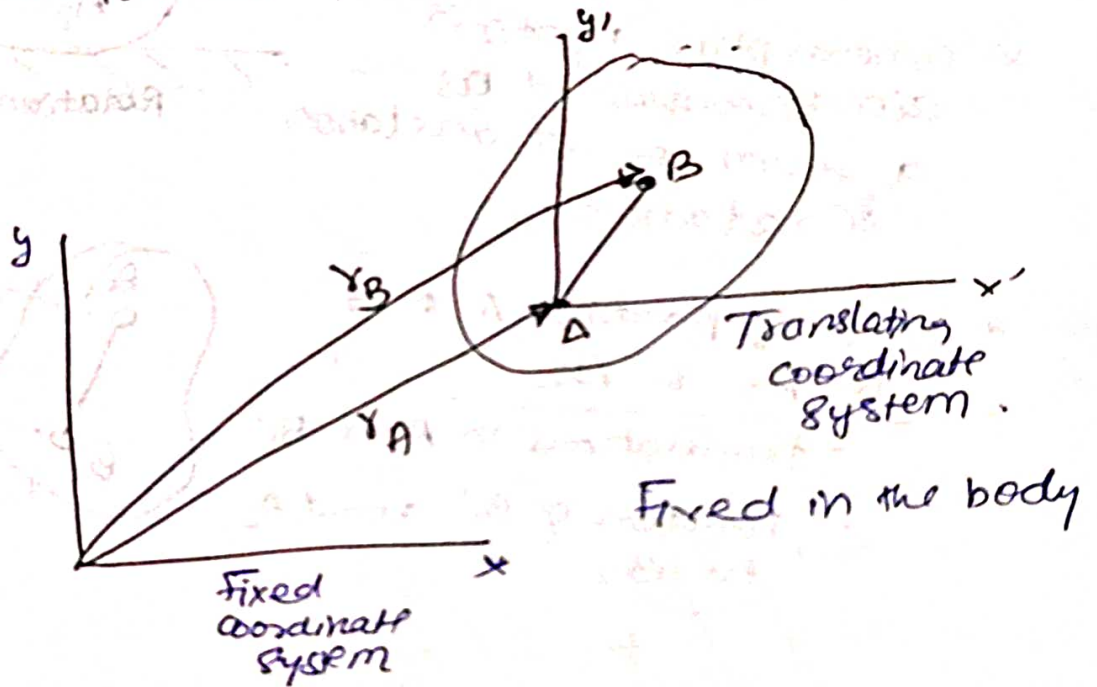 y'
B
y
r_B
x'
A
Translating
coordinate
system.
r_A
Fixed in the body
x
Fixed
coordinate
system